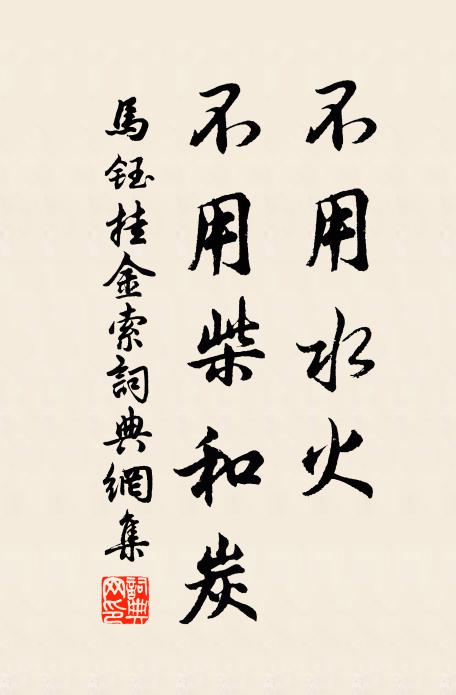 不用水火
不用柴和炭
馬鈺挂金索詞典網集
詞典网印